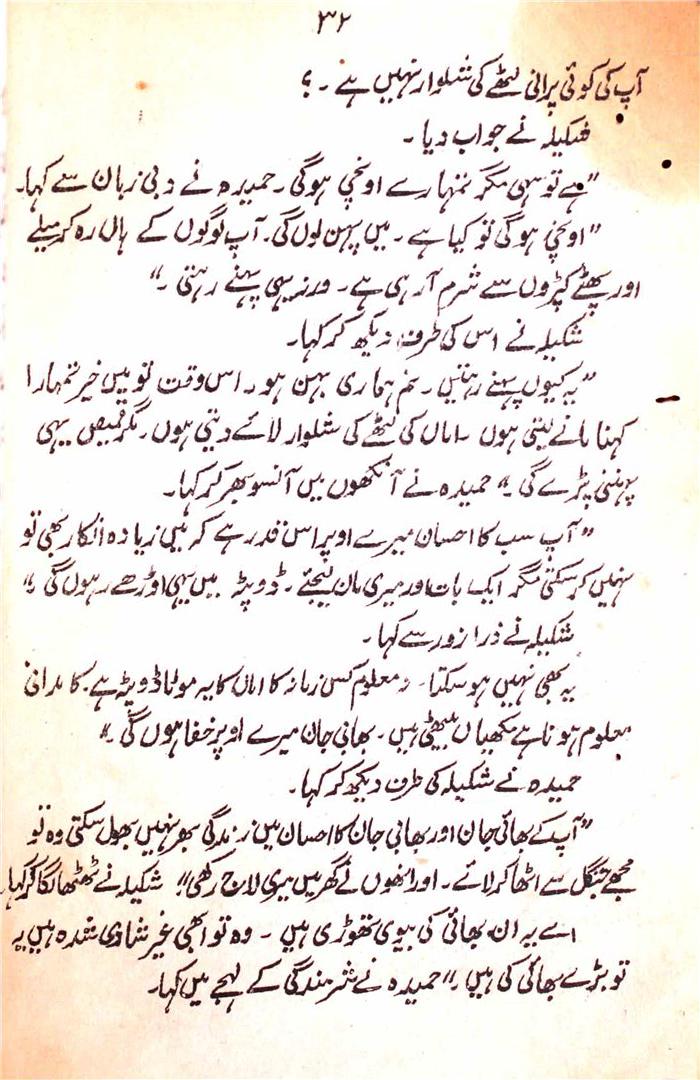 ۳۲
آپ کی کوئی پرانی لٹھے کی شلوار نہیں ہے ۔ ؟
شکیلہ نے جواب دیا ۔
”ہے تو سہی مگر تمہارے اونچی ہوگی ۔ حمیدہ نے دبی زبان سے کہا۔
”اونچی ہوگی تو کیا ہے ۔ میں پہن لوں گی۔ آپ لوگوں کے ہاں رہ کر میلے
اور پھٹے کپڑوں سے شرم آ رہی ہے ۔ ورنہ یہی پہنے رہتی ۔“
شکیلہ نے اس کی طرف دیکھ کر کہا۔
”یہ کیوں پہنے رہتیں ۔ تم ہماری بہن ہو ۔ اس وقت تو میں خیر تمہارا
کہنا مانے لیتی ہوں ۔ اماں کی لٹھے کی شلوار لائے دیتی ہوں ۔ مگر قمیص یہی
پہننی پڑے گی ۔“ حمیدہ نے آنکھوں میں آنسو بھر کر کہا۔
”آپ سب کا احسان میرے اوپر اس قدر ہے کہ میں زیادہ انکار بھی تو
نہیں کر سکتی مگر ایک بات اور میری مان لیجئے ۔ ڈوپٹہ میں یہی اوڑھے رہوں گی ۔“
شکیلہ نے ذرا زور سے کہا ۔
یہ بھی نہیں ہو سکتا ۔ نہ معلوم کس زمانہ کا اماں کا یہ موٹا ڈوپٹہ ہے ۔ کامدانی
معلوم ہوتا ہے مکھیاں بیٹھی ہیں ۔ بھابی جان میرے اوپر خفا ہوں گی ۔“
حمیدہ نے شکیلہ کی طرف دیکھ کر کہا۔
”آپ کے بھائی جان اور بھابی جان کا احسان میں زندگی بھر نہیں بھول سکتی وہ تو
مجھے جنگل سے اٹھا کر لائے ۔ اور انھوں نے گھر میں میری لاج رکھی“ شکیلہ نے ٹھٹھا لگا کر کہا۔
اے یہ ان بھائی کی بیوی تھوڑی ہیں ۔ وہ تو ابھی غیر شادی شدہ ہیں یہ
تو بڑے بھائی کی ہیں ۔“ حمیدہ نے شرمندگی کے لہجے میں کہا۔